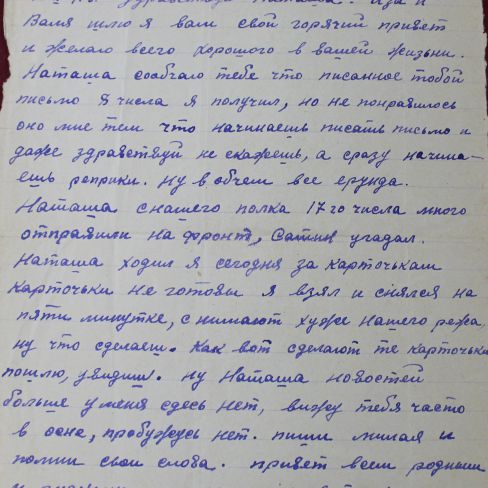 здравствуй Наташа.
Валя шлю я вам свой горячий привет
и желаю всего хорошого в вашей жизни.
Наташа сообчаю тебе что писанное тобой
письмо 8 числа я получил, но не понравилось
оно мне тем что начинаешь писать письмо и
даже здравствуй не скажешь, а сразу начина-
ешь реприки. ну в обчем все ерунда.
Наташа с нашего полка 17 го числа много
отправили на фронт, угадал.
Наташа ходил я сегодня за карточками
карточьки не готовы я взял и снялся на
пяти минутке, снимают хуже нашего
ну что сделаеш. Как вот сделают те карточьки
пошлю, увидиш. ну Наташа новостей
больше у меня сдесь нет, вижу тебя часто
в осне, пробужусь нет. пиши милая и
помни свои слова. привет всем родным